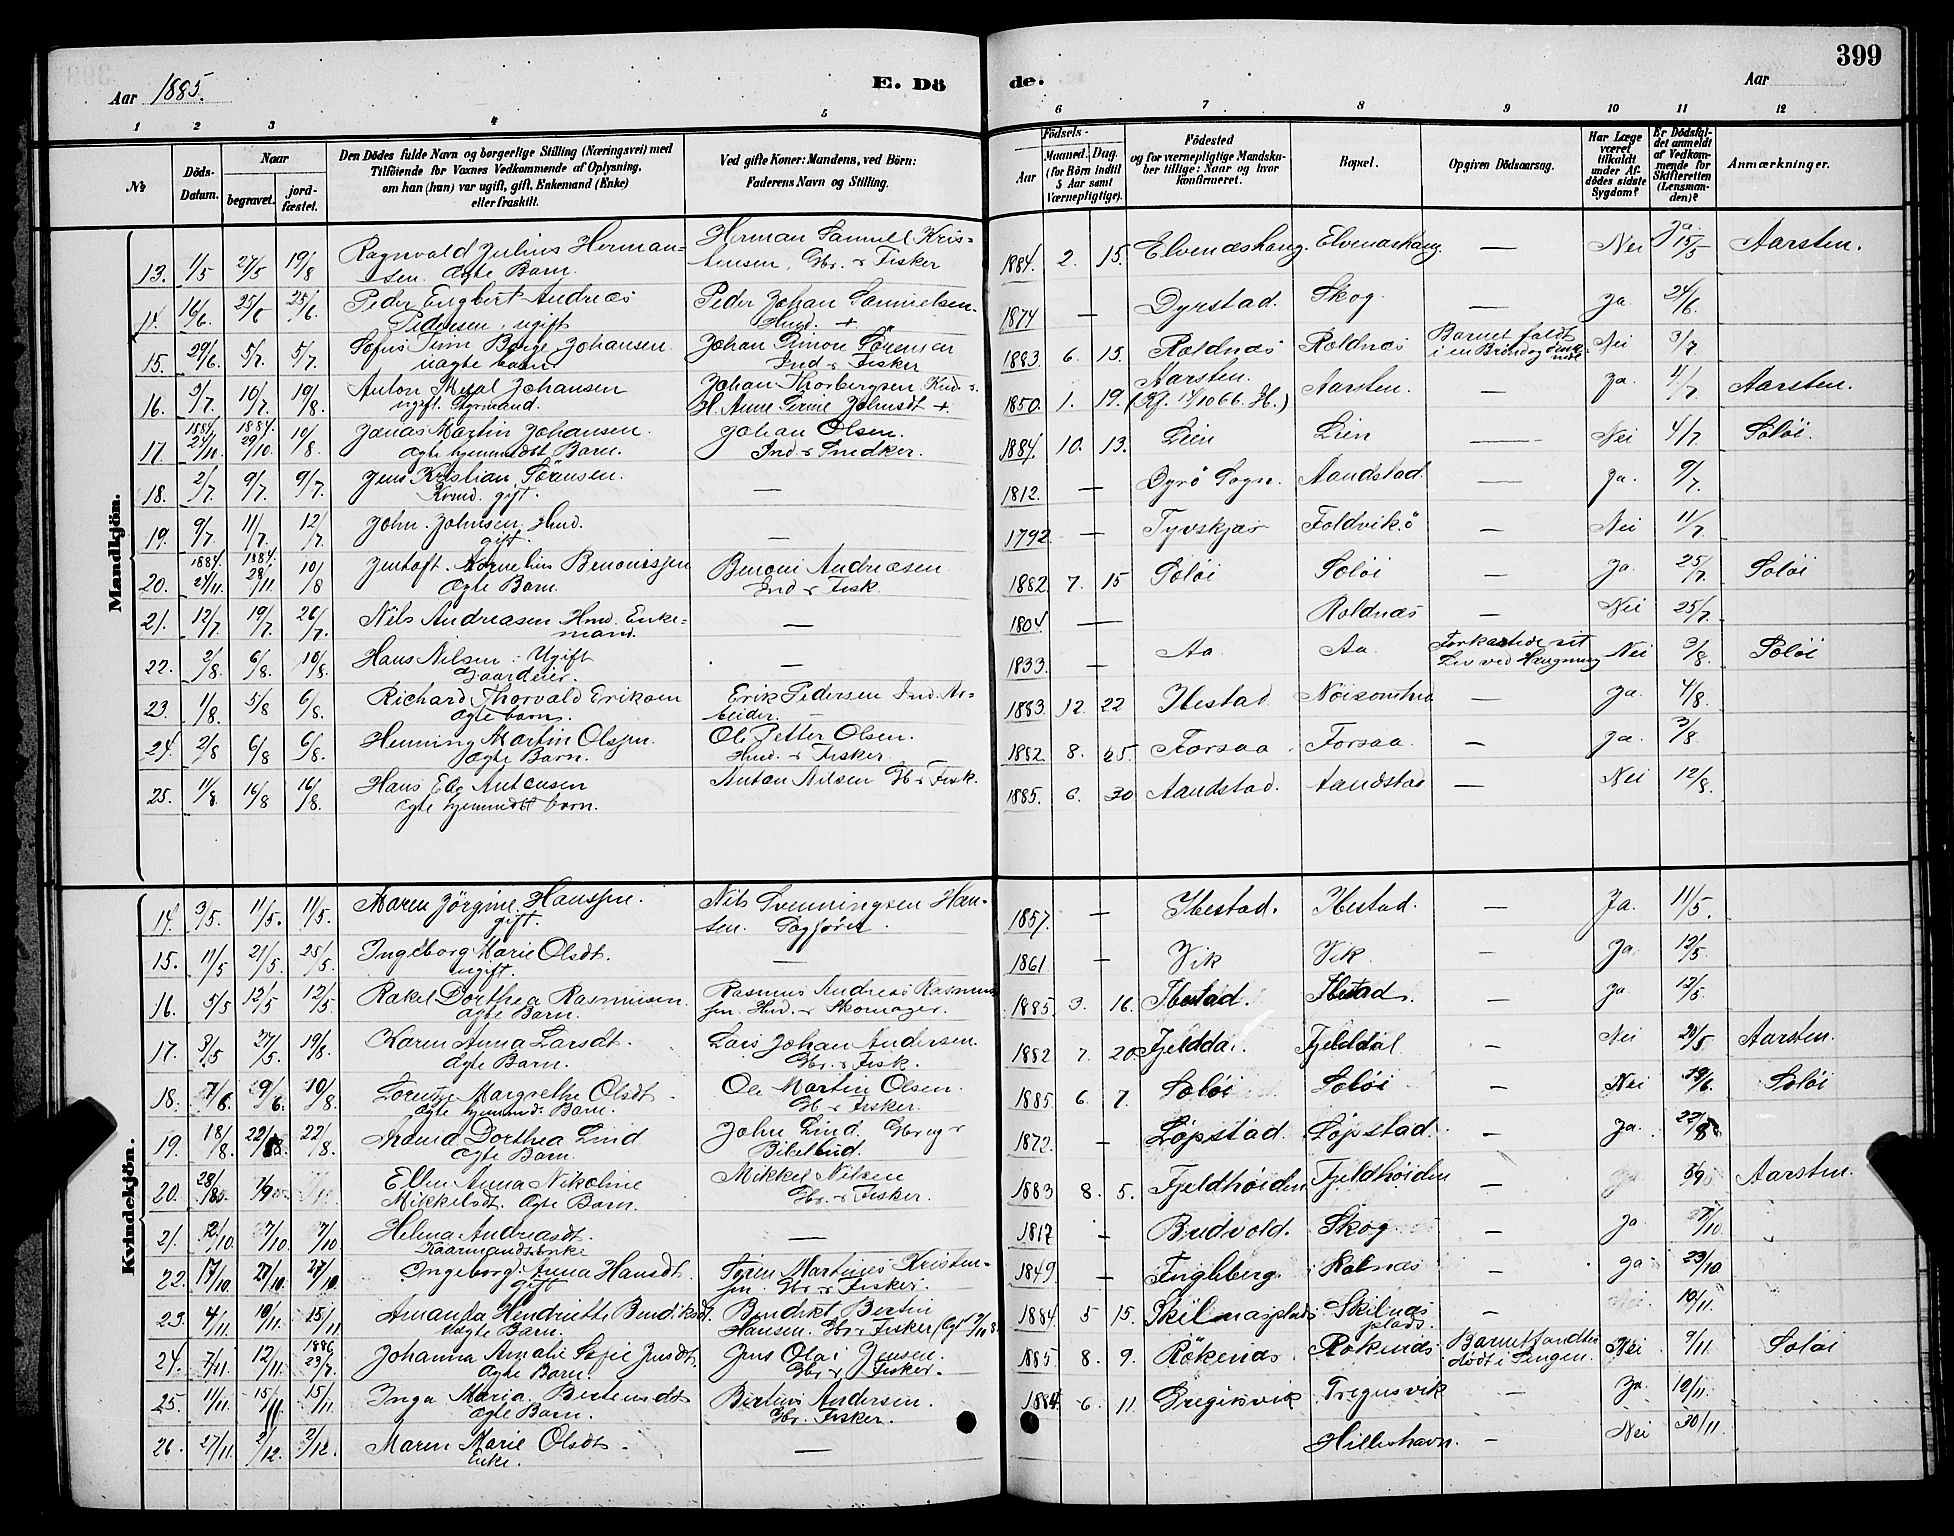 399
Aar 1885.
E. Dö
de.
Aar
1 2 3 4 5 6 7 8 9 10 11 12
No
Döds-Datum.
Naar
begravet.
jord-fæstet.
Den Dödes fulde Navn og borgerlige Stilling (Næringsvei) med
Tilföiende for Voxnes Vedkommende af Oplysning,
om han (hun) var ugift, gift, Enkemand (Enke)
eller fraskilt.
Ved gifte Koner: Mandens, ved Börn:
Faderens Navn og Stilling.
Födsels-
Aar
Maaned. Dag.
(for Börn indtil
5 Aar samt
Værnepligtige).
Födested
og for værnepligtige Mandska-
ber tillige: Naar og hvor
konfirmeret.
Bopæl.
Opgiven Dödsaarsag.
Har Læge
været
tilkaldt
under Af-
dödes sidste
Sygdom?
Er Dödsfal-
det anmeldt
af Vedkom-
mende for
Skifteretten
(Lensman-
den)?
Anmærkninger.
Mandkjön.
13. 1/5 27/5 19/8 Ragnvald Julius Herman- Herman Samuel Kris- 1884. 2. 15. Elvenæshaug. Elvenæshaug. — Nei Ja. 15/5 Aarsten.
sen. ægte Barn. tensen, Gbr. & Fisker
14. 16/6 25/6 25/6. Peder Engbert Andreas Peder Johan Samuelsen. 1874 — Dyrstad. Skog. — Ja 24/6
Pedersen, ugift Hmd. +
15. 29/6 5/7. 5/7. Sofus Johansen. Johan Simon Sörensen 1883 6. 15. Roldnæs Roldnæs Barnet faldt Nei 3/7
uægte barn. Ind. & Fisker i en Brönd og
16. 3/7. 10/7. 19/8. Anton Johansen Johan Thorbergsen 1850. 1. 19. Aarsten. Aarsten. — Ja. 4/7 Aarsten.
ugift. Styrmand. H. Anne Johnsdt + 1066. H.)
17. 1884 24/10 1884. 29/10. 10/8. Jonas Martin Johansen. Johan Olsen. 1884. 10. 13. Lien Lien — Nei 4/7 Solöi.
ægte hjemmedöbt Barn. Ind. & Snedker.
18. 2/7 9/7. 9/7 Jens Kristian Sörensen. — 1812. — Dyrö Sogn. Aandstad — Ja. 9/7.
gift.
19. 9/7. 11/7. 12/7 John Johnsen. Hmd. — 1792. — Tyvskjær Foldvikö — Nei 11/7
gift.
20. 1884. 24/11. 1884. 28/11 10/8 Jentoft Kornelius Benonissen Benoni Andreasen 1882. 7. 15 Solöi Solöi — Ja. 25/7. Solöi
ægte Barn. Ind. & Fisk.
21. 12/7 19/7. 26/7. Nils Andreasen Hmd. Enke- — 1804. — Roldnæs — Nei 25/7.
mand.
22. 2/8 6/8. 10/8. Hans Nilsen. Ugift — 1833. — Aa Aa Nei 3/8. Solöi
Gaardeier. Liv ved Hængning
23. 1/8. 5/8 6/8. Richard Thorvald Eriksen Erik Pedersen Ind. Ar- 1883. 12. 22 Ibestad — Ja. 4/8.
ægte barn. beider.
24. 2/8 6/8 6/8. Henning Martin Olsen. Ole Petter Olsen. 1882. 8. 25. Forsaa. Forsaa. — Ja. 3/8.
ægte Barn. Hmd. & Fisker.
25. 11/8. 16/8 16/8. Hans Antonsen Anton Nilsen Gbr & Fisk. 1885. 6. 30 Aandstad. Aandstad — Nei 12/8.
ægte hjemmedöbt barn.
Kvindekjön.
14. 3/5. 11/5. 11/5. Maren Jörgine Hanssen. Nils Svenningsen Han- 1857. — Ibestad. Ibestad. — Ja. 11/5.
gift. sen.
15. 11/5 21/5. 25/5. Ingeborg Marie Olsdt. — 1861 — Vik Vik. — Ja. 12/5.
ugift.
16. 5/5 12/5 12/5. Rakel Dorthea Rasmussen. Rasmus Andreas Rasmus- 1885. 3. 16. Ibestad. Ibestad. — Ja 12/5
ægte Barn. sen. Hmd. & Skomager.
17. 8/5 27/5. 19/8. Karen Anna Larsdt. Lars Johan Andersen. 1882 7. 20 Fjelddal. Fjelddal — Nei 29/5 Aarsten.
ægte Barn. Gbr. & Fisk.
18. 7/6 29/6. 10/8. Lorentze Margrethe Olsdt Ole Martin Olsen. 1885 6. 7. Solöi Solöi — Nei 19/6. Solöi
ægte hjemmd. Barn. Gbr. & Fisker.
19. 18/8. 22/8. 22/8. Dorthea Lind John Lind. Gbrug & 1872. — Löpstad. Löpstad. — Ja. 22/8
ægte Barn. Bibelbud.
20. 28/8. 7/9 Ellen Anna Nikoline Mikkel Nilsen 1883 8. 5. Fjeldhöiden Fjeldhöiden — Aarsten.
Mikkelsdt. ægte Barn. Gbr. & Fisker.
21. 2/10. 7/10. 7/10 Helena Andreasdt. — 1817 — Budvold. Skog. — Ja 7/10.
Kaarmands Enke
22. 17/10. 27/10. 27/10 Ingeborg Anna Hansdt. Sören Martinus Kristen- 1849. — Engleberg. Rolnæs — Ja 23/10
gift sen. Gbr. & Fisker.
23. 4/11. 10/11. 15/11 Amanda Hendriette Bendiksdt. Bendikt Bertin 1884. 5 15. Skilnæsplads Skilnæs — 10/11.
ægte Barn. Hansen. Gbr. & Fisker plads.
24. 7/11. 12/11. 1886 23/7. Johanna Amalie Sofie Jensdt. Jens Olai Jensen. 1885. 8. 9. Rökenæs. Rökenæs Barnet fandtes Nei 9/11. Solöi
ægte Barn. Gbr. & Fisker. dödt i Sengen.
25. 11/11. 15/11. 15/11. Inga Maria Bertensdt Bertius Andersen. 1884. 6. 11. Breginsvik Tregnsvik — Ja. 12/11.
ægte Barn. Gbr. Fisker.
26. 27/11. 2/12. 2/12. Maren Marie Olsdt. — Hilleshavn. — Nei 30/11.
Enke.